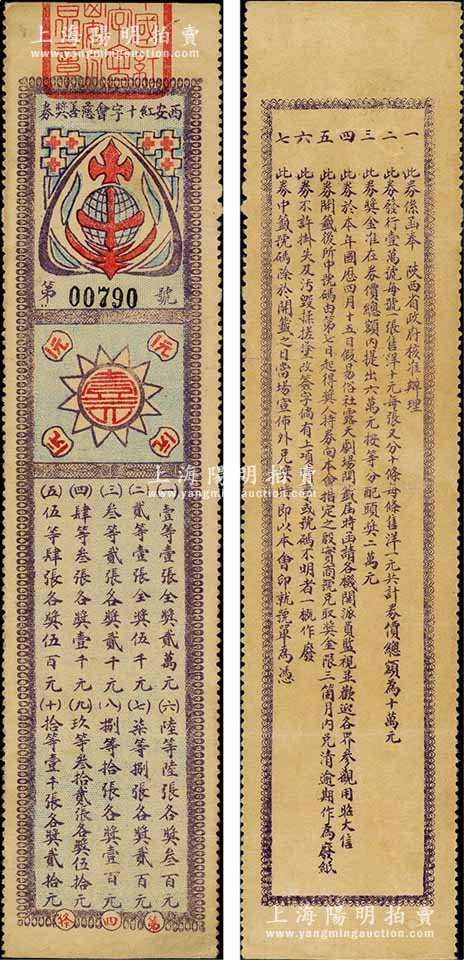 上海陽明拍賣
www.yangmingauction.com
西安紅十字會慈善獎券
第 00790 號
壹元
壹元
壹元
壹元
壹元
(一)壹等壹張全獎貳萬元
(二)貳等壹張全獎伍千元
(三)叁等貳張各獎貳千元
(四)肆等叁張各獎壹千元
(五)伍等肆張各獎伍百元
(六)陸等陸張各獎叁百元
(七)柒等捌張各獎貳百元
(八)捌等拾張各獎壹百元
(九)玖等叁拾貳張各獎伍拾元
(十)拾等壹千張各獎貳拾元
第四條
上海陽明拍賣
www.yangmingauction.com
一 此券係函奉 陝西省政府核准辦理
二 此券發行壹萬號每號一張售洋十元每張又分十條每條售洋一元共計券價總額為十萬元
三 此券獎金准在券價總額內提出六萬元按等分配頭獎二萬元
四 此券於本年國曆四月十五日假易俗社露天劇場開籤屆時函請各機關派員監視並歡迎各界參觀用昭大信
五 此券開籤後所中號碼由第七日起得獎人持券向本會指定之殷實商號兌取獎金限三箇月內兌清逾期作為廢紙
六 此券不許掛失及污毀揉搓塗改簽字倘有上項或號碼不明者一概作廢
七 此券中籤號碼除於開籤之日當場宣佈外兌獎時即以本會印就號單為憑
上海陽明拍賣
www.yangmingauction.com
上海陽明拍賣
www.yangmingauction.com